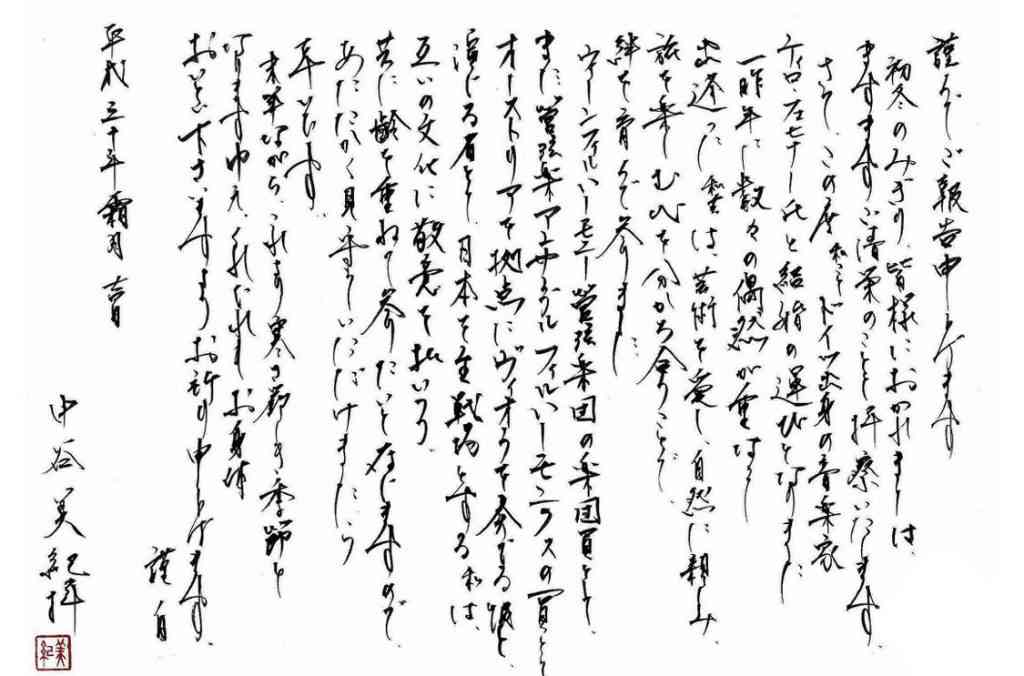 謹んでご報告申し上げます
初冬のみぎり、皆様におかれましては、
ますますご清栄のことと拝察いたします。
さて、この度 私ことドイツ出身の音楽家
ティロ・フェヒナー氏と結婚の運びとなりました
一昨年に数々の偶然が重なって
出逢った私達は、芸術を愛し、自然に親しみ、
旅を楽しむ心を分かち合うことで
絆を育んで参りました。
ウィーンフィルハーモニー管弦楽団の楽団員として、
また管弦楽アンサンブルフィルハーモニクスの一員として
オーストリアを拠点にヴィオラを奏でる彼と、
演じる者として、日本を主戦場とする私は、
互いの文化に敬意を払いつつ
共に齢を重ねて参りたいと存じますので、
あたたかく見守っていただけましたら
幸いです。
末筆ながら、これより寒さ厳しき季節と
なりますゆえ、くれぐれもお身体
おいとい下さいますようお祈り申し上げます。
謹白
平成三十年霜月吉日
中谷美紀拝
美紀